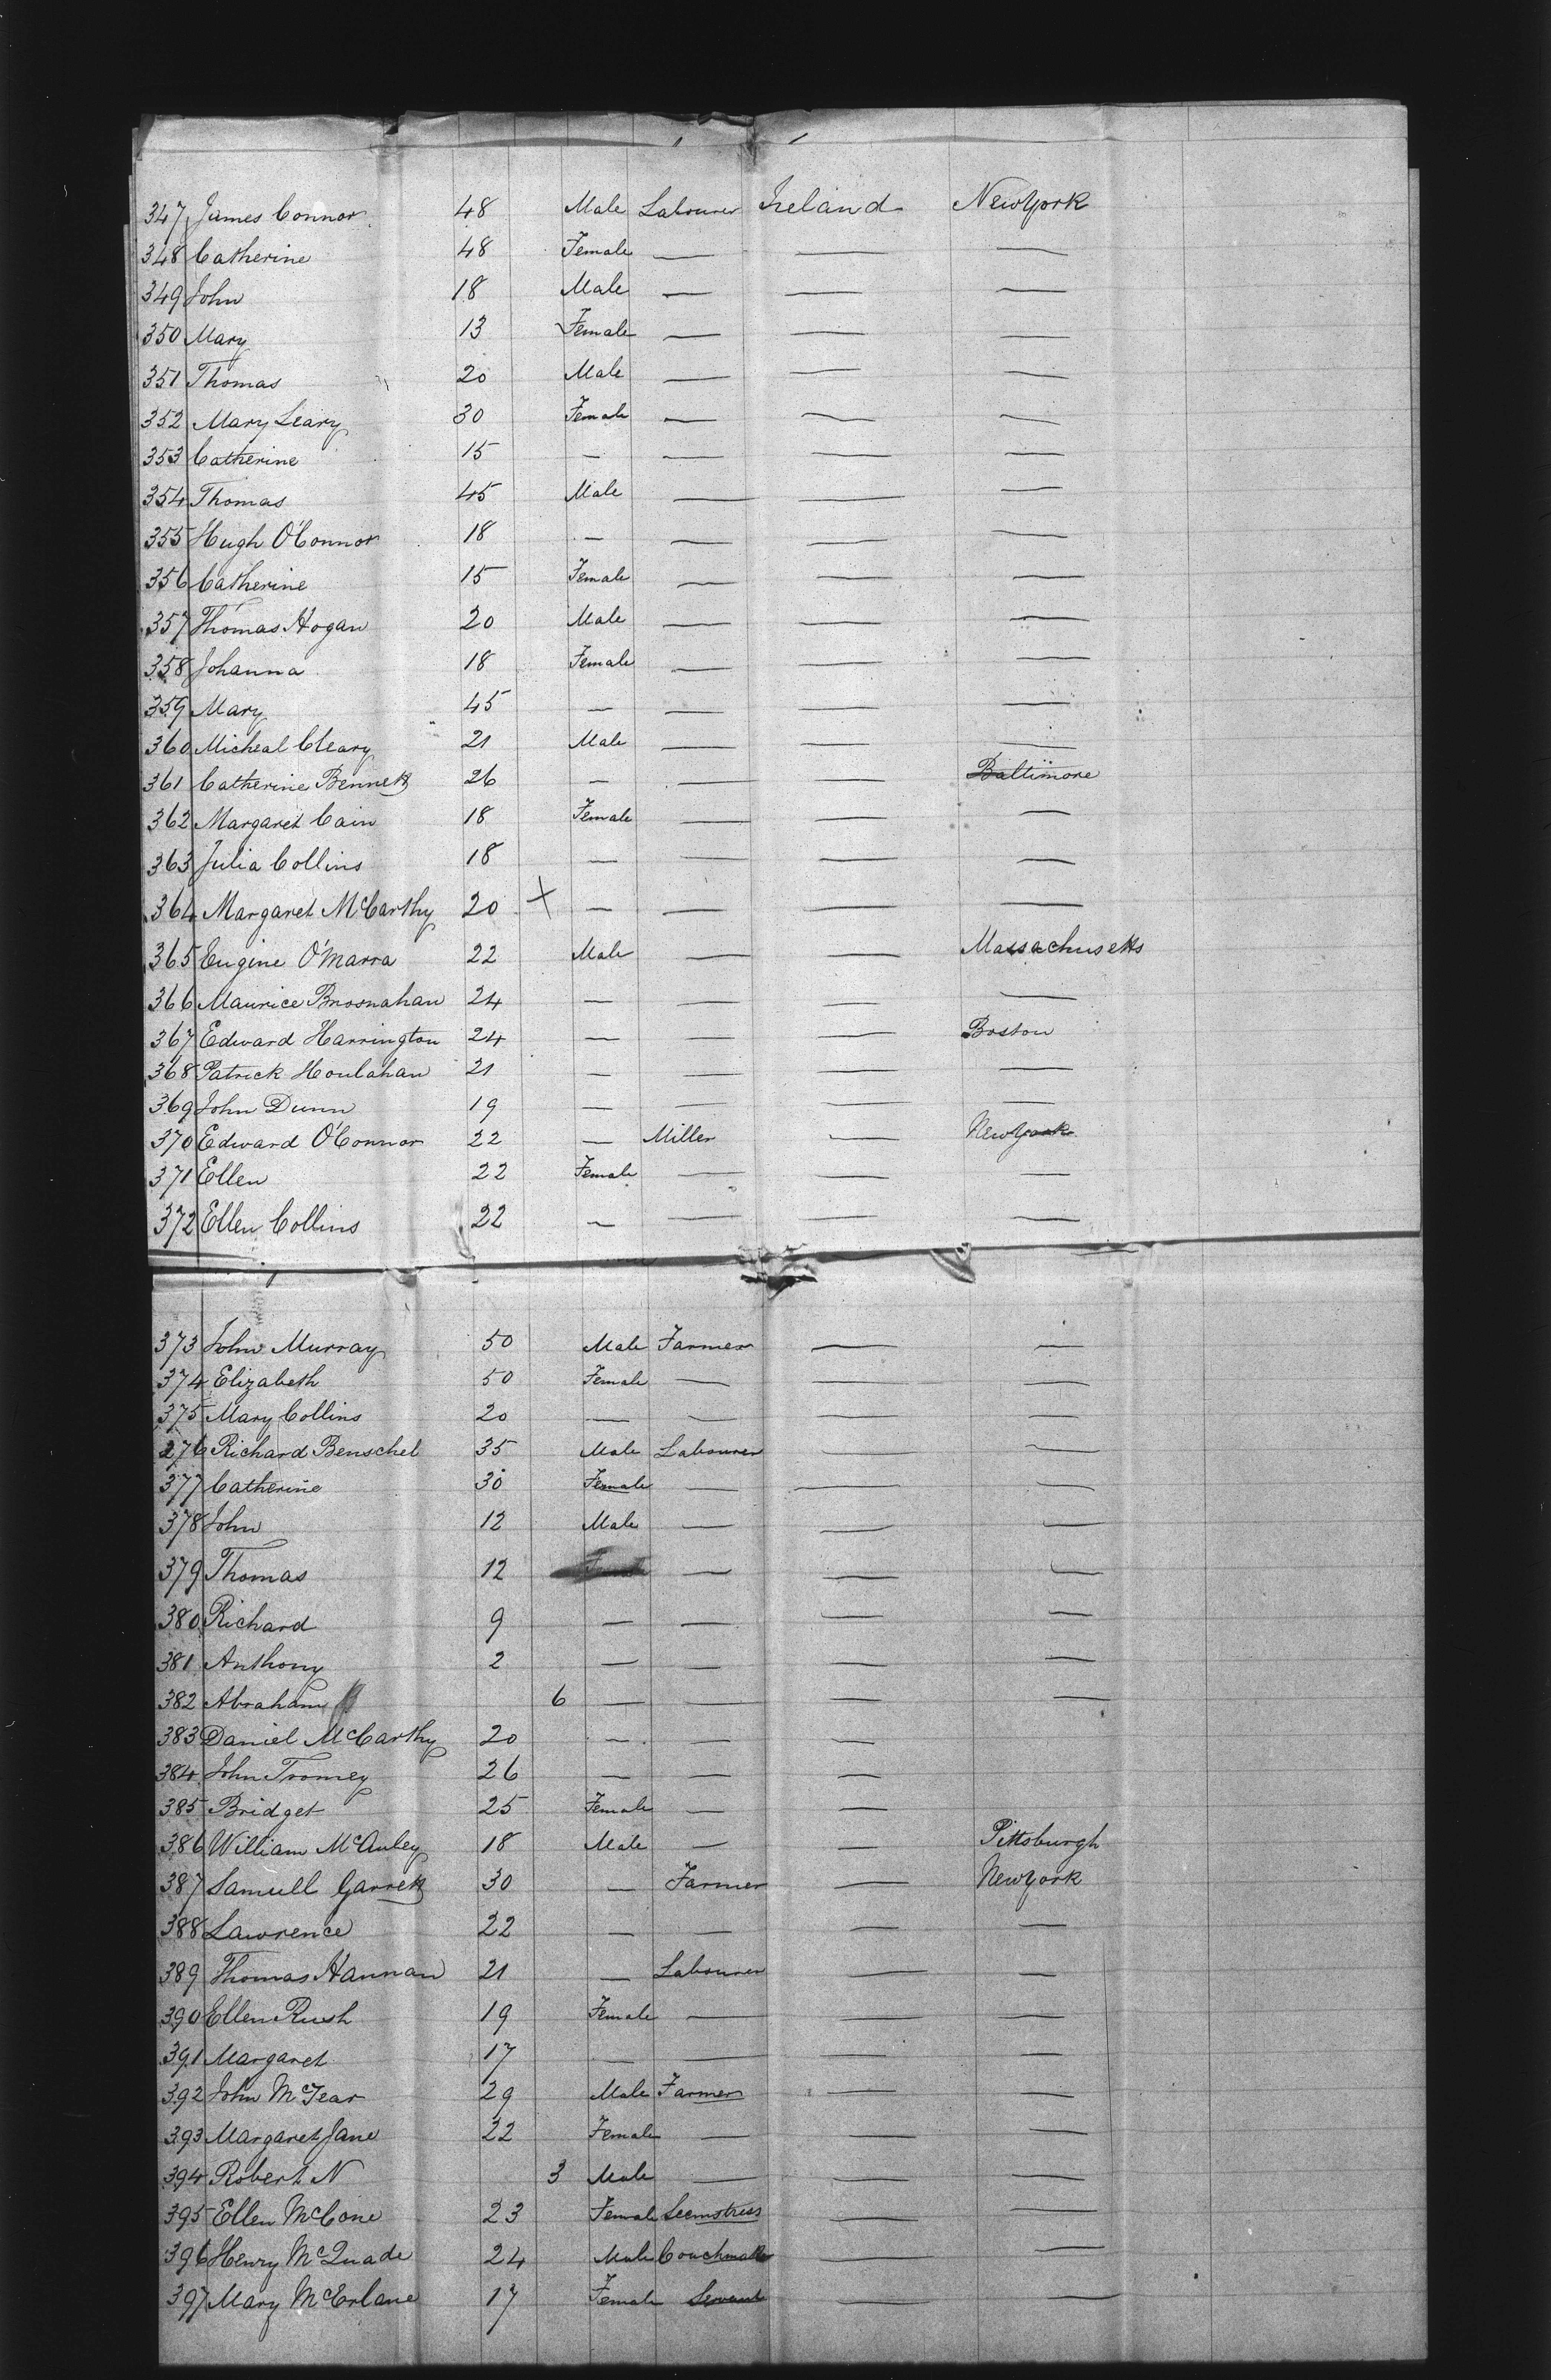 347 James Connor 48 Male Labourer Ireland New York
348 Catherine 48 Female — — —
349 John 18 Male — — —
350 Mary 13 Female — — —
351 Thomas 20 Male — — —
352 Mary Leary 30 Female — — —
353 Catherine 15 — — — —
354 Thomas 45 Male — — —
355 Hugh O'Connor 18 — — — —
356 Catherine 15 Female — — —
357 Thomas Hogan 20 Male — — —
358 Johanna 18 Female — — —
359 Mary 45 — — — —
360 Micheal Cleary 21 Male — — —
361 Catherine Bennett 26 — — — Baltimore
362 Margaret Cain 18 Female — — —
363 Julia Collins 18 — — — —
364 Margaret McCarthy 20 X — — — —
365 Eugine O'Marra 22 Male — — Massachusetts
366 Maurice Brosnahan 24 — — — —
367 Edward Harrington 24 — — — Boston
368 Patrick Houlahan 21 — — — —
369 John Dunn 19 — — — —
370 Edward O'Connor 22 — Miller — New York
371 Ellen 22 Female — — —
372 Ellen Collins 22 — — — —
373 John Murray 50 Male Farmer — —
374 Elizabeth 50 Female — — —
375 Mary Collins 20 — — — —
276 Richard Benschel 35 Male Labourer — —
377 Catherine 30 Female — — —
378 John 12 Male — — —
379 Thomas 12 — — —
380 Richard 9 — — — —
381 Anthony 2 — — — —
382 Abraham 6 — — — —
383 Daniel McCarthy 20 — — —
384 John Twomey 26 — — —
385 Bridget 25 Female — —
386 William McAuley 18 Male — — Pittsburgh
387 Samuell Garrett 30 — Farmer — New York
388 Lawrence 22 — — — —
389 Thomas Hannan 21 — Labourer — —
390 Ellen Rush 19 Female — — —
391 Margaret 17 — — — —
392 John McFear 29 Male Farmer — —
393 Margaret Jane 22 Female — — —
394 Robert N 3 Male — — —
395 Ellen McCone 23 Female Seemstress — —
396 Henry McQuade 24 Male Coachmaker — —
397 Mary McErlane 17 Female Servant — —